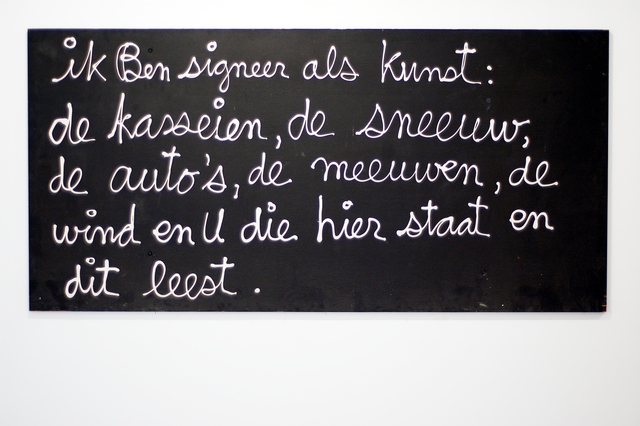 ik Ben signeer als Kunst:
de kasseien, de sneeuw,
de auto's, de meeuwen, de
wind en U die hier staat en
dit leest.